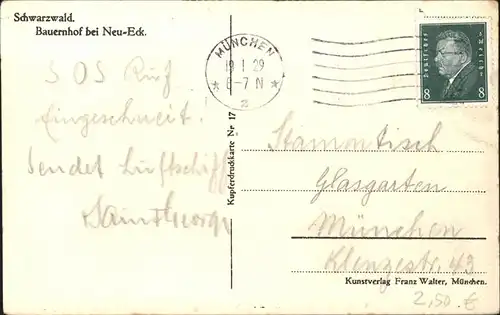 Schwarzwald.
Bauernhof bei Neu-Eck.
MÜNCHEN
19 1 29
6-7 N
2
Deutsches Reich
8 8
SOS Ruf
Eingeschneit.
Sendet Luftschiff
Kupferdruckkarte Nr. 17
Stammtisch
Glasgarten
München
Klenzestr. 43
Kunstverlag Franz Walter, München.
2,50 €